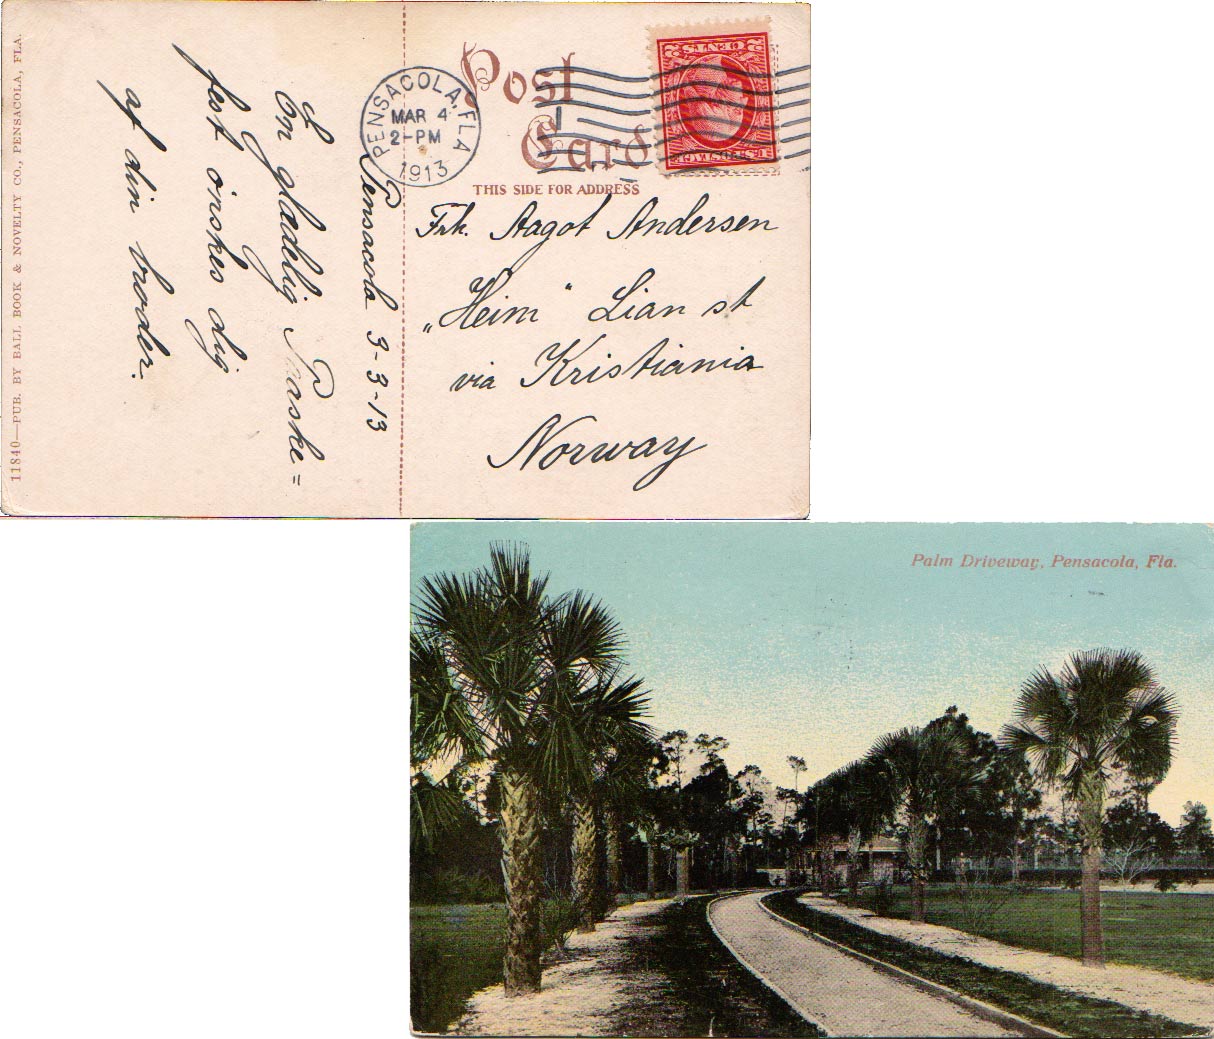 11840—PUB. BY BALL BOOK & NOVELTY CO., PENSACOLA, FLA.
Pensacola 3-3-13
En glædelig Paaske=
fest önskes dig
af din broder.
Post
Card
THIS SIDE FOR ADDRESS
PENSACOLA, FLA
MAR 4
2-PM
1913
U.S. POSTAGE
2 CENTS 2
Frk. Aagot Andersen
„Heim" Lian st
via Kristiania
Norway
Palm Driveway, Pensacola, Fla.